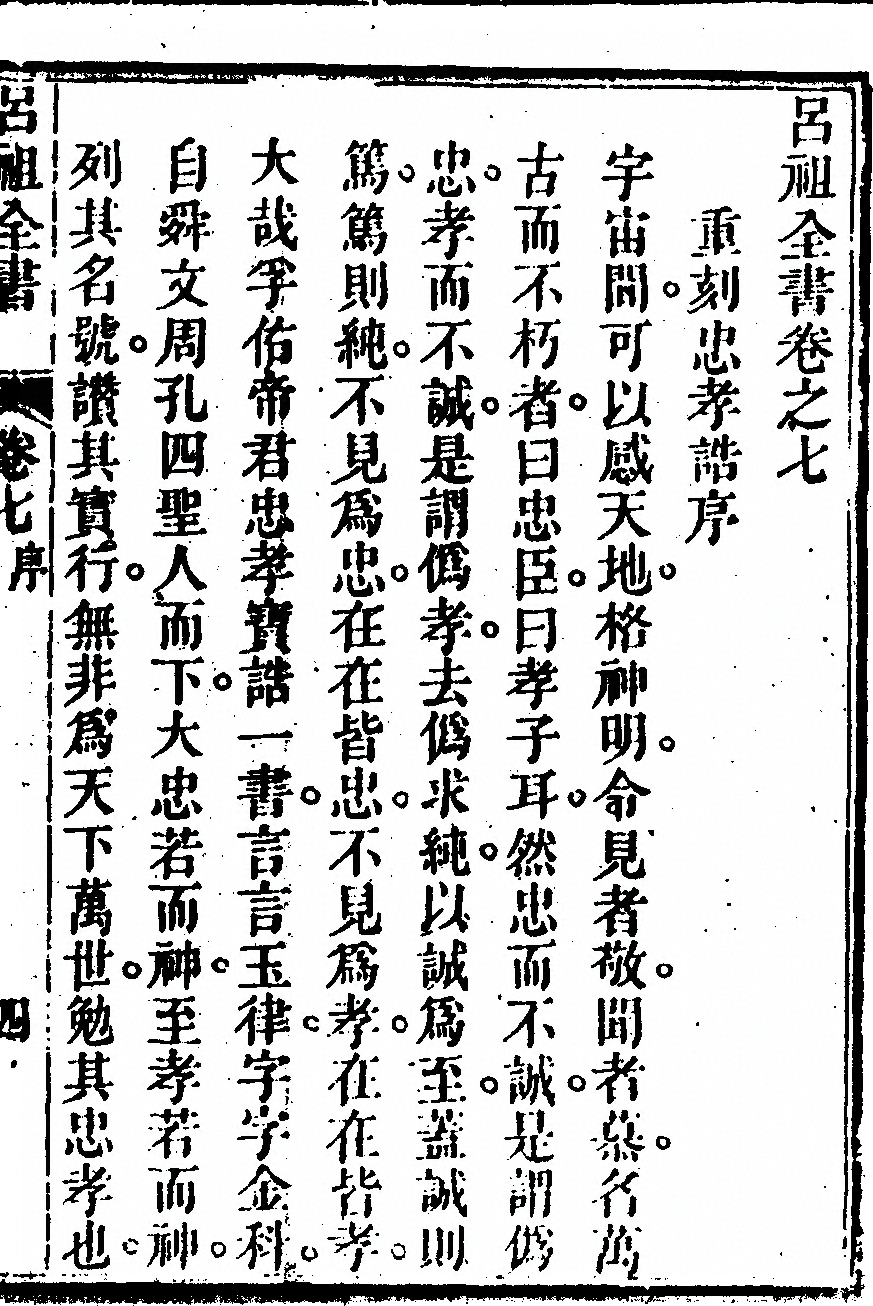 呂祖全書卷之七
重刻忠孝誥序
宇宙間。可以感天地。格神明。令見者敬。聞者慕。名萬
古而不朽者。曰忠臣。曰孝子耳。然忠而不誠。是謂僞
忠。孝而不誠。是謂僞孝。去僞求純。以誠爲至。蓋誠則
篤。篤則純。不見爲忠。在在皆忠。不見爲孝。在在皆孝。
大哉孚佑帝君忠孝寶誥一書。言言玉律。字字金科。
自舜文周孔四聖人而下。大忠若而神。至孝若而神。
列其名號。讚其實行。無非爲天下萬世。勉其忠孝也。
呂祖全書 卷七 序 四